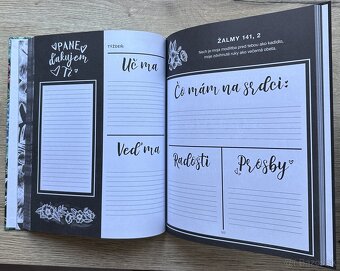 PANE
ďakujem
Ti
TÝŽDEŇ:
Uč ma
Veď ma
ŽALMY 141, 2
Nech je moja modlitba pred tebou ako kadidlo,
moje zdvihnuté ruky ako večerná obeta.
Čo mám na srdci:
Radosti
Prosby